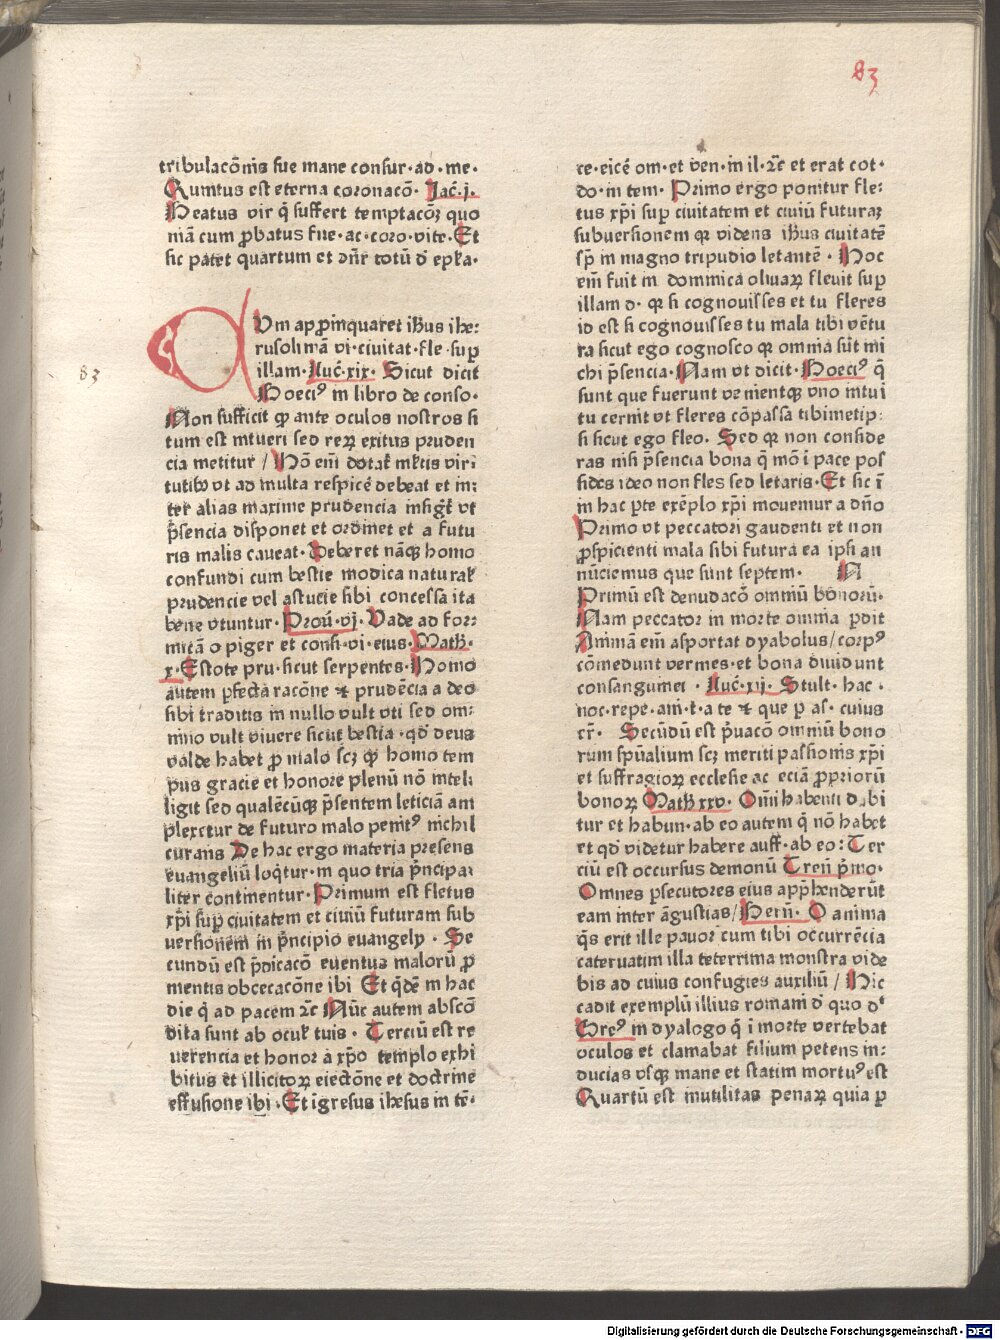 83
tribulacōnis sue mane consur·ad·me·
Quintus est eterna coronacō· Jac̄·j·
Beatus vir q̄ suffert temptacōꝫ quo
niā cum ꝓbatus fue·ac·coro·vite·Et
sic patet quartum et ꝯn̄r totū d̄ ep̄ka·
83
Vm apꝓinquaret ih̄us ihe:
rusolimā vi·ciuitat·fle·suꝑ
illam·Luc̄·xix· Sicut dicit
Boeciꝰ in libro de conso·
Non sufficit qꝫ ante oculos nostros si
tum est intueri sed reꝝ exitus pruden
cia metitur / Hō em̄ dotat᷑ m̄ltis vir:
tutibꝰ vt ad multa respicē debeat et in:
ter alias maxime prudencia insigt᷑ vt
p̄sencia disponet et ordinet et a futu
ris malis caueat· Deberet nāqꝫ homo
confundi cum bestie modica natural᷑
prudencie vel astucie sibi concessa ita
bene vtuntur·Prou̅·vj· Vade ad for:
micā o piger et consi·vi·eius·Math·
x·Estote pru·sicut serpentes·Homo
autem ꝑfecta racōne ⁊ prudēcia a deo
sibi traditis in nullo vult vti sed om:
nino vult viuere sicut bestia·qd̄ deus
valde habet ꝓ malo scꝫ qꝫ homo tem
pus gracie et honore plenū nō inteli
ligit sed qualēcūqꝫ p̄sentem leticiā am
plexetur de futuro malo penitꝰ nichil
curans De hac ergo materia presens
euangeliū loq̄tur·in quo tria p̄ncipa:
liter continentur·Primum est fletus
xp̄i suꝑ ciuitatem et ciuiū futuram sub
uersionem in p̄ncipio euangelij·Se
cundū est p̄dicacō euentuꝫ malorū ꝓ
mentis obcecacōne ibi Et q̄dē in hac
die q̄ ad pacem ⁊c̄ Nūc autem abscō
dita sunt ab ocul᷑ tuis·Terciū est re
uerencia et honor a xp̄o templo exhi
bitus et illicitoꝝ eiectōne et doctrine
effusione ibi·Et īgresus ihesus in tē·
re·eicē om·et ven·in il·⁊c̄ et erat cot·
do·in tem·Primo ergo ponitur fle:
tus xp̄i suꝑ ciuitatem et ciuiū futuraꝫ
subuersionem qꝛ videns ih̄us ciuitatē
sp̄ in magno tripudio letantē·Hoc
em̄ fuit in dominica oliuaꝝ fleuit suꝑ
illam d·qꝛ si cognouisses et tu fleres
id est si cognouisses tu mala tibi vētu
ra sicut ego cognosco qꝛ omnia sūt mi
chi p̄sencia·Nam vt dicit·Boeciꝰ q̄
sunt que fuerunt venientqꝫ vno intui
tu cernit vt fleres cōpassa tibimetip:
si sicut ego fleo·Sed qꝛ non conside
ras nisi p̄sencia bona q̄ mō ī pace pos
sides ideo non fles sed letaris·Et sic ī
in hac ꝑte exēplo xp̄i mouemur a dn̄o
Primo vt peccatori gaudenti et non
ꝓspicienti mala sibi futura ea ipsi an
nūciemus que sunt septem·
Primū est denudacō omniū bonorū·
Nam peccator in morte omnia ꝑdit
Animā em̄ asportat dyabolus/corpꝰ
cōmedunt vermes·et bona diuidunt
consanguinei·Luc̄·xij·Stult·hac·
noc·repe·ani·t·a te ⁊ que ꝑ as·cuius
er̄·Secūdū est p̄uacō omniū bono
rum sp̄ualium scꝫ meriti passionis xp̄i
et suffragioꝝ ecclesie ac eciā ꝓpriorū
bonoꝝ Math xxv·Om̄i habenti dabi
tur et habun·ab eo autem q̄ nō habet
et qd̄ videtur habere auff·ab eo:Ter
ciū est occursus demonū Tren̄ p̄mo·
Omnes ꝑsecutores eius app̄henderūt
eam inter āgustias/Bern̄·O anima
q̄s erit ille pauor cum tibi occurrēcia
cateruatim illa teterrima monstra vide
bis ad cuius confugies auxiliū / Hic
cadit exemplū illius romani d̄ quo dᵗ
Greꝰ in dyalogo q̄ ī morte vertebat
oculos et clamabat filium petens in:
ducias vsqꝫ mane et statim mortuꝰ est
Quartū est inutilitas penaꝝ quia ꝑ
Digitalisierung gefördert durch die Deutsche Forschungsgemeinschaft - DFG